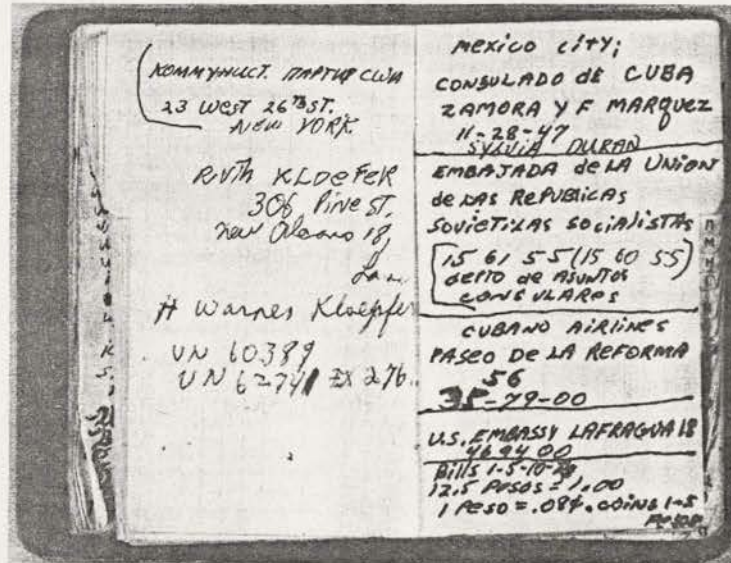 КОММУНИСТ. ПАРТИЯ США
23 WEST 26TH ST.
NEW YORK
RVTH KLOEFER
306 Pine ST.
New Oleans 18,
La.
H Warnes Kloepfer
UN 60389
UN 62741 EX 276
MEXICO CITY;
CONSULADO de CUBA
ZAMORA Y F MARQUEZ
11-28-47
SYLVIA DURAN
EMBAJADA de LA UNION
de LAS REPUBICAS
SOVIETICAS SOCIALISTAS
15 61 55 (15 60 55)
DEPTO de ASUNTOS
CONSULARES
CUBANO AIRLINES
PASEO DE LA REFORMA
56
35-79-00
U.S. EMBASSY LAFRAGUA 18
46 94 00
Bills 1-5-10-20
12.5 PESOS = 1.00
1 PESO = .08¢. COINS 1-5
PESOS